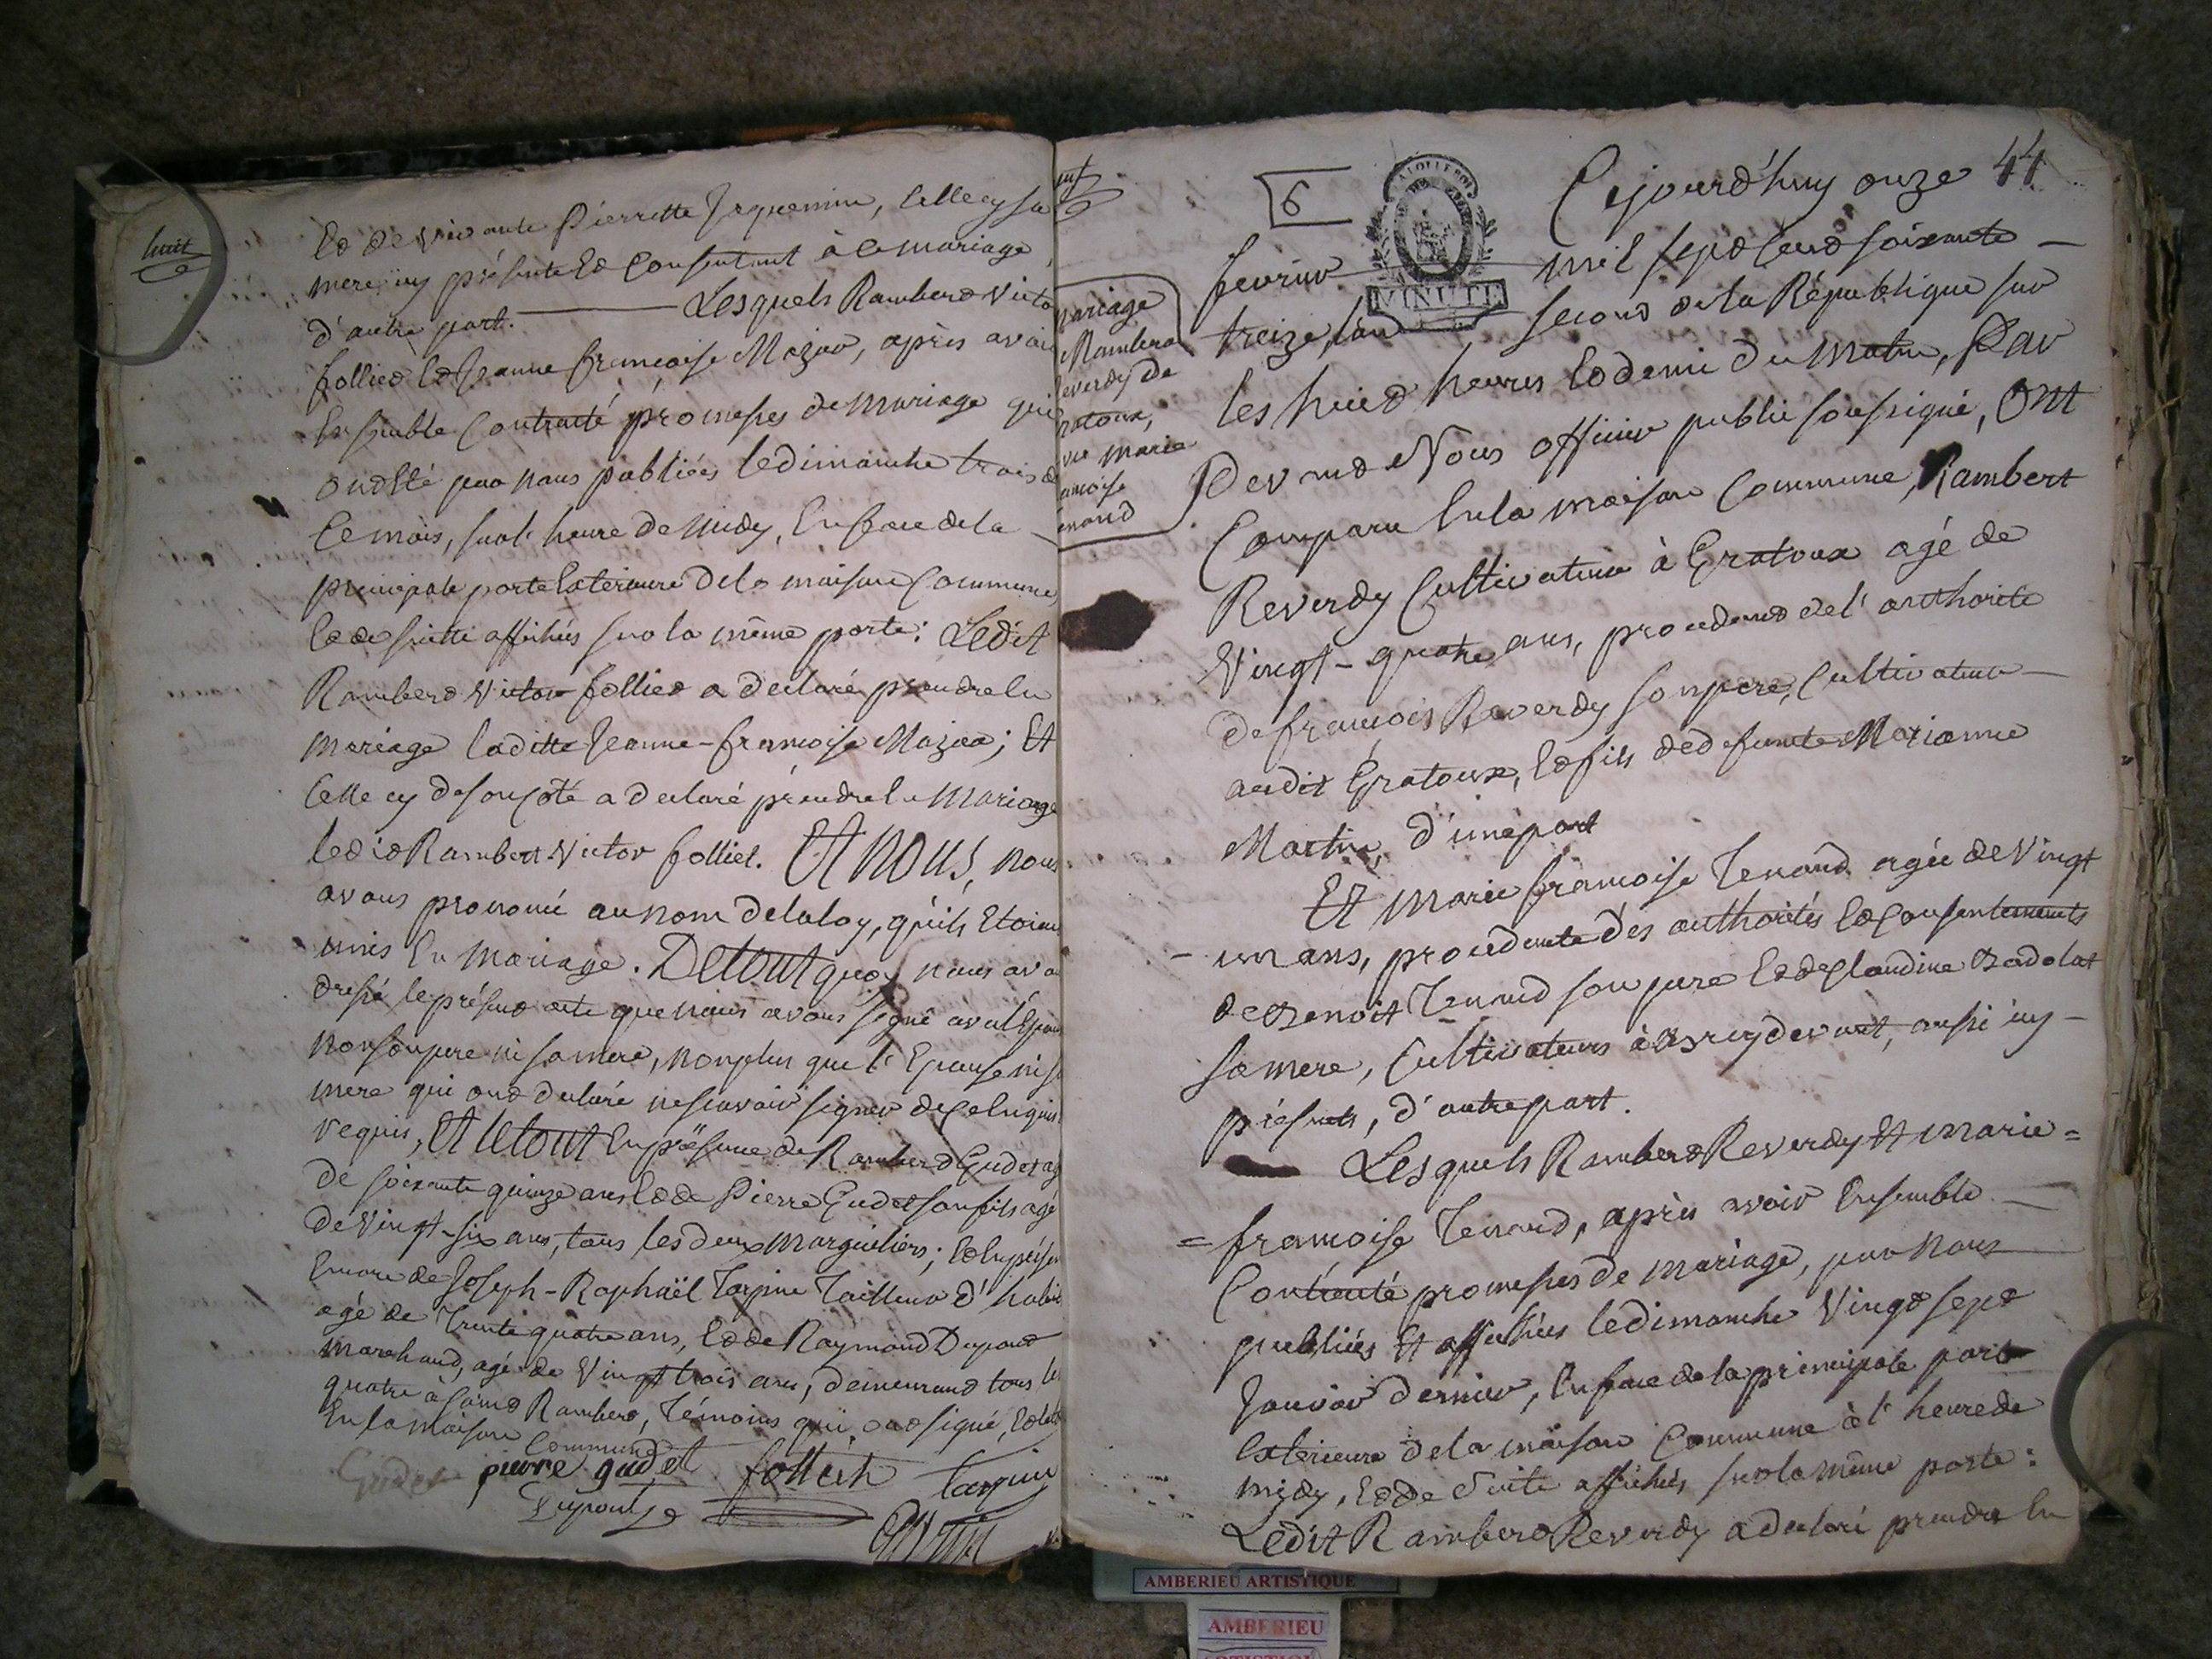 huit
Et de vivante Pierrette Jaquemin, celle cy sa
mere icy présente Et Consentant à ce mariage
d'autre part. Lesquels Rambert Victor
folliet Et Jeanne françoise Mazur, après avoir
Ensemble Contracté promesses de mariage qui
ont Eté par nous publiées le dimanche trois de
ce mois, sur l'heure de midy, En face de la
principale porte Exterieure de la maison Commune
Et de suitte affichés sur la même porte: Ledit
Rambert Victor folliet a declaré prendre En
mariage laditte Jeanne-françoise Mazur; Et
celle cy de son coté a declaré prendre En Mariage
ledit Rambert Victor folliet. Et nous, nous
avons prononcé au nom de la loy, qu'ils Etoient
unis En Mariage. De tout quoy nous avons
dressé le présent acte que nous avons signé avec l'Epoux
non son pere ni sa mere, non plus que l'Epouse ni sa
mere qui ont declaré ne scavoir signer de ce Enquis
requis, Et le tout En présence de Rambert Gudet agé
de soixante quinze ans Et de Pierre Gudet son fils agé
de vingt-six ans, tous les deux Marguiliers; Et En présence
Encore de Joseph-Raphaël Tarpin Tailleur d'habits
agé de Trente quatre ans, Et de Raymond Dupont
marchand, agé de Vingt trois ans, demeurant tous les
quatre à Saint Rambert, Témoins qui ont signé,
En la maison Commune
Gudet pierre gudet folliet Tarpin
Dupont
6
Cejourd'huy onze 44
MINUTE
fevrier mil sept cent soixante
treize, l'an second de la République sur
les huit heures Et demi du Matin, Par
Devant Nous officier public soussigné, Ont
Comparu En la maison Commune, Rambert
Reverdy Cultivateur à Gratoux agé de
Vingt-quatre ans, procedant de l'authorité
de françois Reverdy son pere, Cultivateur
audit Gratoux, Et fils de defunte Marianne
Martin, d'une part
Et Marie françoise Tenand agée de Vingt
un ans, procedante des authorités Et Consentements
de Benoit Tenand son pere Et de Claudine Badolat
sa mere, Cultivateurs à Breydevant, aussi icy
présents, d'autre part.
Lesquels Rambert Reverdy Et Marie=
=françoise Tenand, après avoir Ensemble
Contracté promesses de mariage, par nous
publiées Et affichées le dimanche Vingt sept
Janvier dernier, En face de la principale porte
Exterieure de la maison Commune à l'heure de
midy, Et de suite affichés sur la même porte:
Ledit Rambert Reverdy a declaré prendre En
mariage
Rambert
Reverdy de
Gratoux,
Marie
françoise
Tenand
AMBERIEU ARTISTIQUE
AMBERIEU
ARTISTIQUE